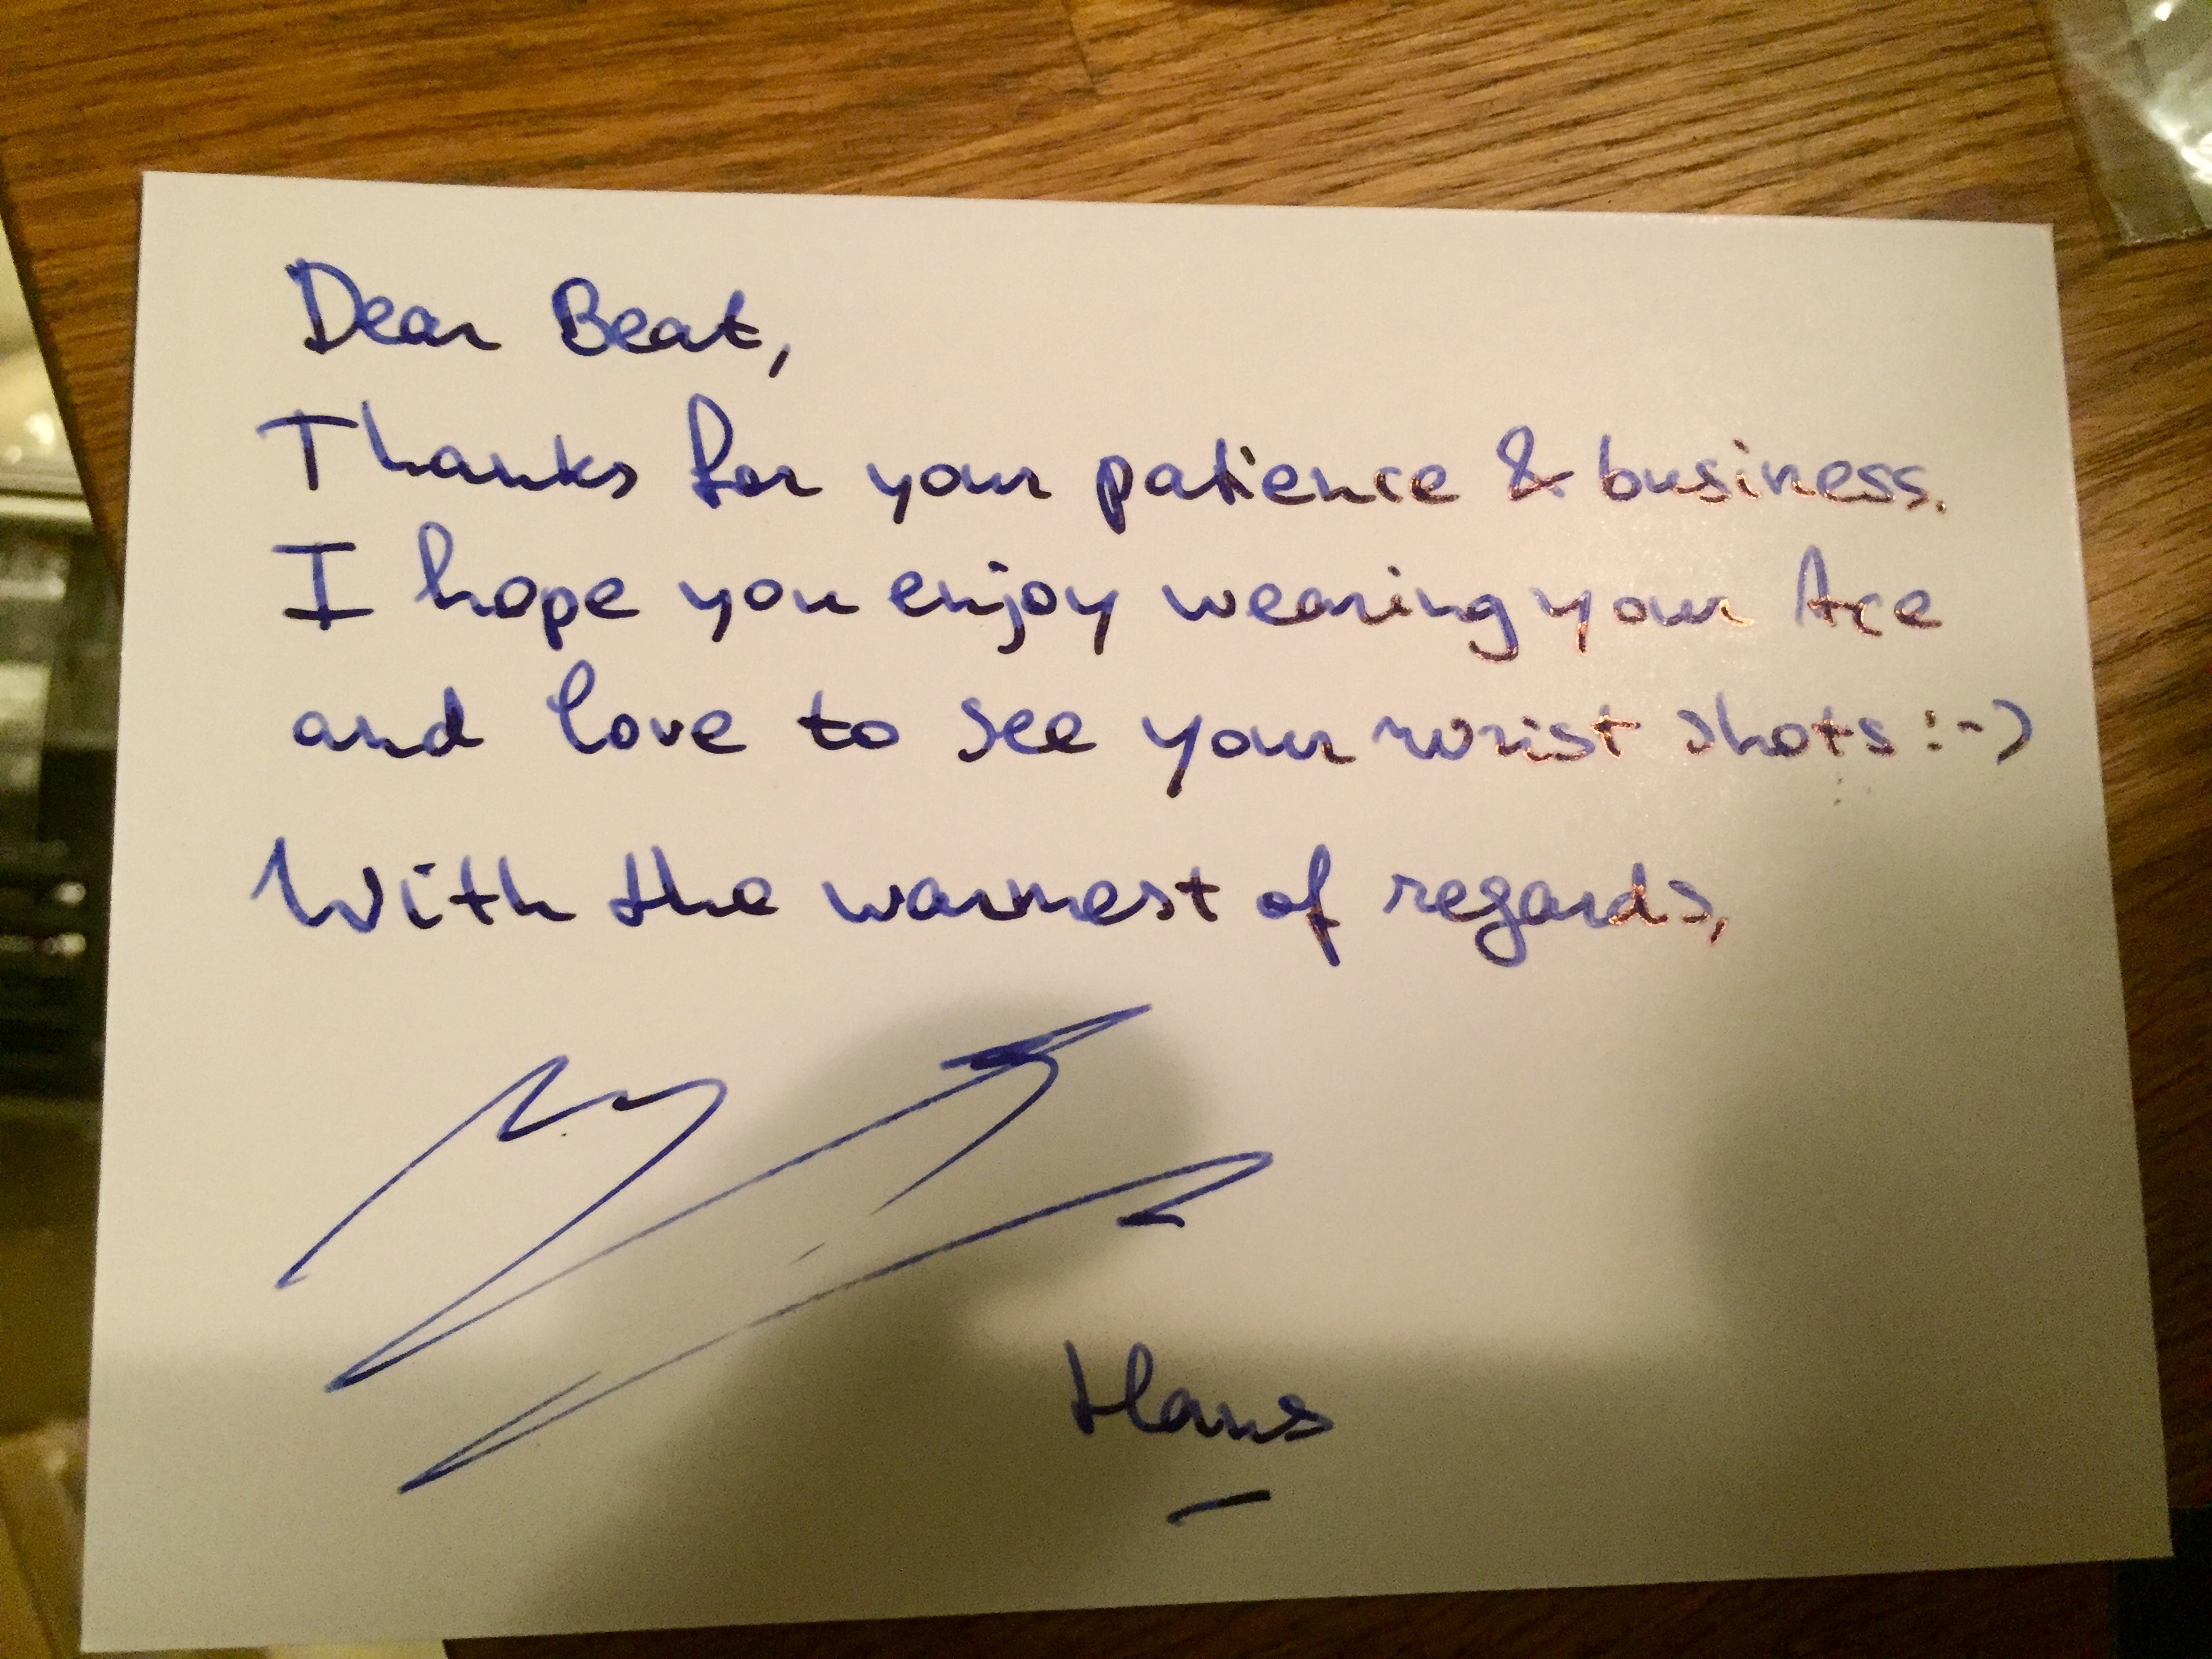 Dear Beat,
Thanks for your patience & business.
I hope you enjoy wearing your Ace
and love to see your wrist shots :-)
With the warmest of regards,
Hans